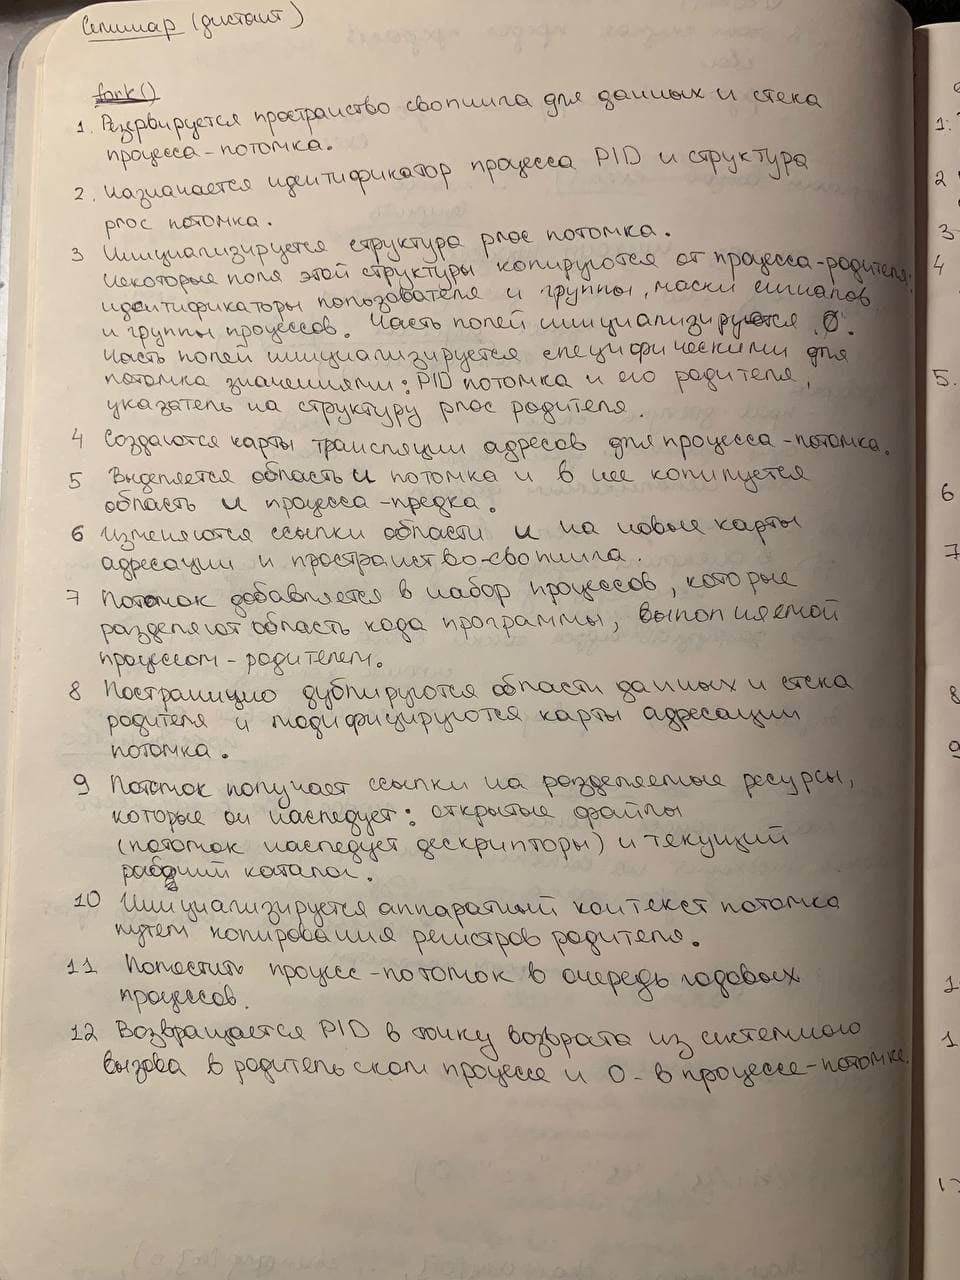 Семинар (дистант)
fork()
1. Резервируется пространство свопинга для данных и стека
процесса-потомка.
2. Назначается идентификатор процесса PID и структура
proc потомка.
3 Инициализируется структура proc потомка.
Некоторые поля этой структуры копируются от процесса-родителя:
идентификаторы пользователя и группы, маски сигналов
и группы процессов. Часть полей инициализируется 0.
Часть полей инициализируется специфическими для
потомка значениями: PID потомка и его родителя,
указатель на структуру proc родителя.
4 Создаются карты трансляции адресов для процесса-потомка.
5 Выделяется область u потомка и в нее копируется
область u процесса-предка.
6 Изменяются ссылки области u на новые карты
адресации и пространство-свопинга.
7 Потомок добавляется в набор процессов, которые
разделяют область кода программы, выполняемой
процессом-родителем.
8 Постранично дублируются области данных и стека
родителя и модифицируются карты адресации
потомка.
9 Потомок получает ссылки на разделяемые ресурсы,
которые он наследует: открытые файлы
(потомок наследует дескрипторы) и текущий
рабочий каталог.
10 Инициализируется аппаратный контекст потомка
путем копирования регистров родителя.
11 Поместить процесс-потомок в очередь готовых
процессов.
12 Возвращается PID в точку возврата из системного
вызова в родительском процессе и 0 - в процессе-потомке.
1:
2
3
4
5.
6
7
8
9
1
1